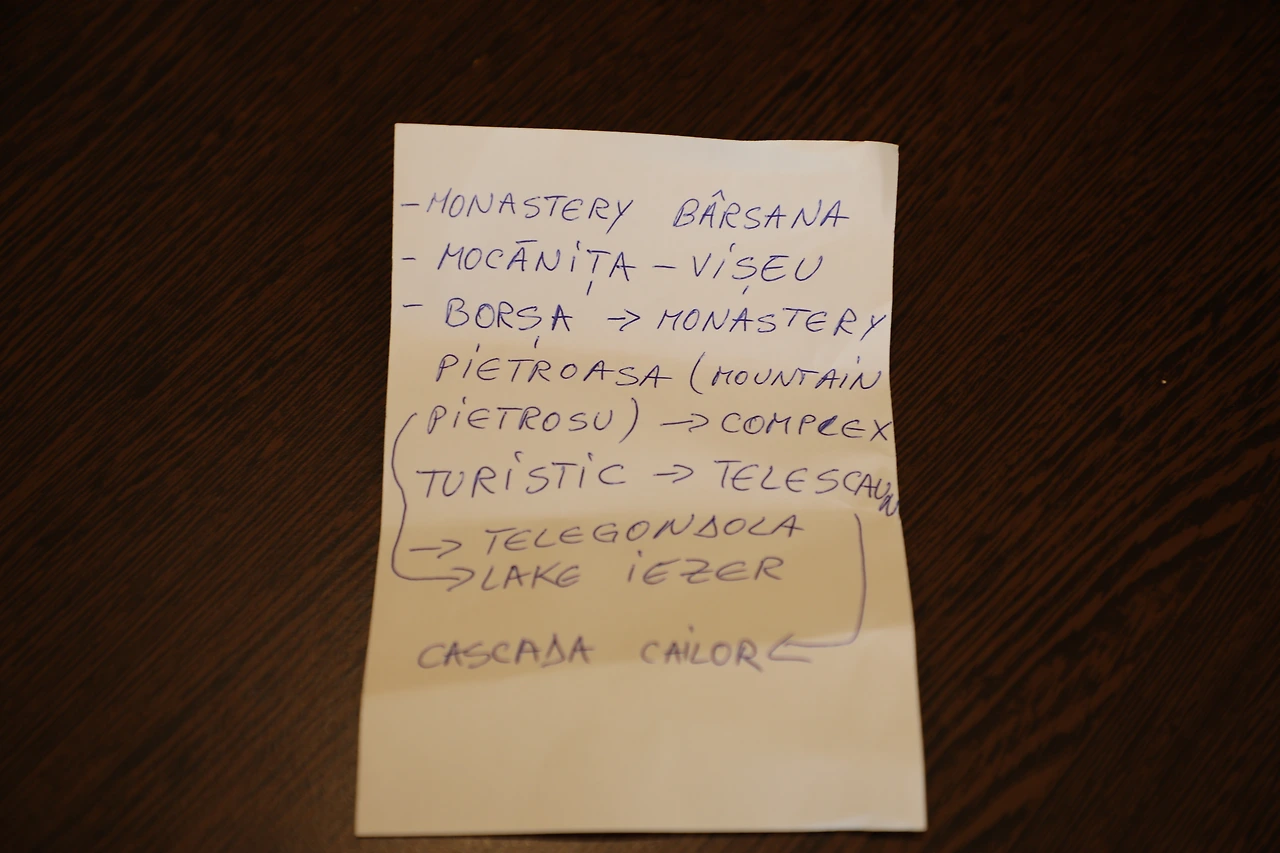 - MONASTERY BÂRSANA
- MOCĂNiȚA - ViȘEU
- BORȘA → MONASTERY
PiETROASA (MOUNTAiN
PiETROSU) → COMPLEX
TURiSTiC → TELESCAUN
→ TELEGONDOLA
→ LAKE iEZER
CASCADA CAiLOR ←